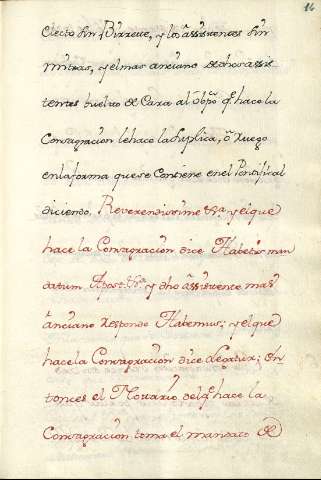 16
electo sin Birreue, y los assistentes sin
mitras, y el mas anciano de dhos assis
tentes buelto de Cara al Obpo q haze la
Consagracion le haze la suplica, o Ruego
en la forma que se Contiene en el Pontifical
diciendo. Reverendissime &a. y el que
hace la Consagracion dice Habetis man
datum Apost. &a. y dho assistente mas
anciano responde Habemus; y el que
hace la Consagracion dice Legatur; En
tonces el Notario del q hace la
Consagracion toma el mandato de